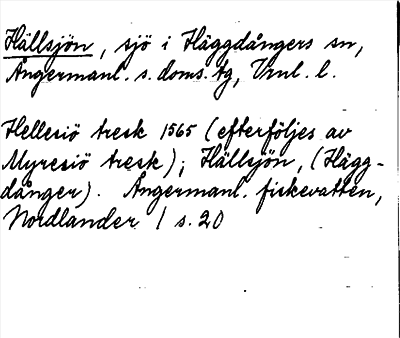 Hällsjön, sjö i Häggdångers sn,
Ångermanl. s. doms. tg, Vnl. l.
Hellesiö tresk 1565 (efterföljes av
Myresiö tresk); Hällsjön, (Hägg-
dånger). Ångermanl. fiskevatten,
Nordlander 1 s. 20